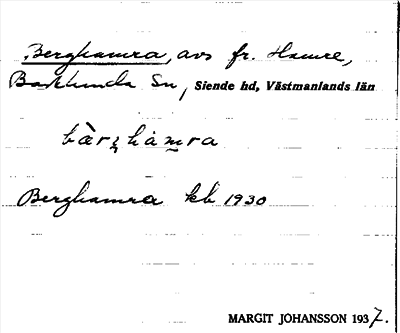 Berghamra, avs fr. Hamre,
Barkunda Sn, Siende hd, Västmanlands län
bàrʒhámra
Berghamra kb 1930
MARGIT JOHANSSON 1937.